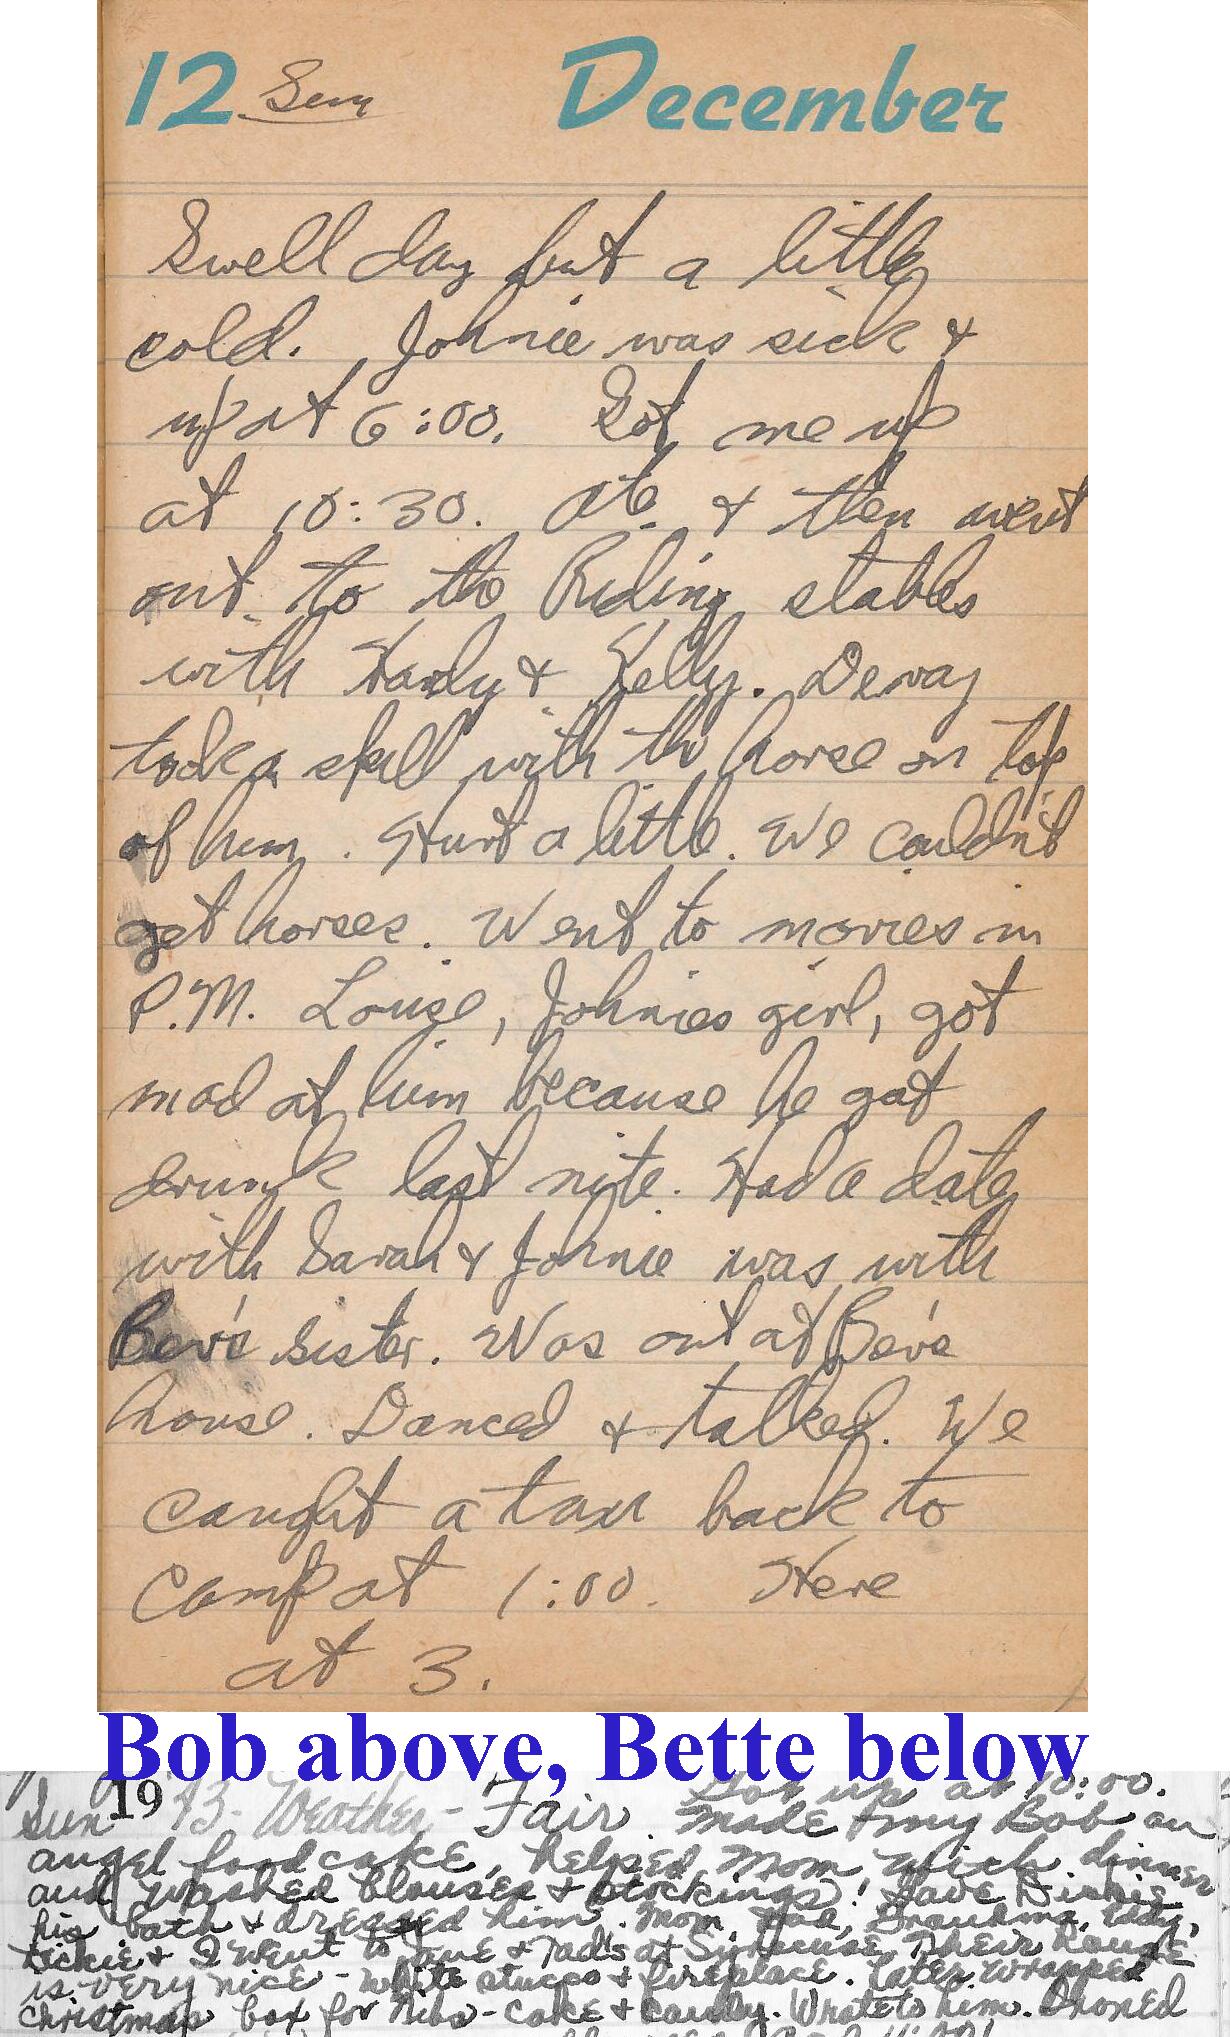 12 Sun December
Swell day but a little
cold. Johnie was sick &
up at 6:00. Got me up
at 10:30. Ate & then went
out to the Riding stables
with Hardy & Kelly. Deway
took a spill with the horse on top
of him. Hurt a little. We couldn't
get horses. Went to movies in
P.M. Louise, Johnies girl, got
mad at him because he got
drunk last nite. Had a date
with Sarah & Johnie was with
Bev's sister. Was out at Bev's
house. Danced & talked. We
caught a taxi back to
camp at 1:00. Here
at 3.
Bob above, Bette below
Got up at 10:00.
Sun 1943 - Weather - Fair. Made my Bob an
angel food cake, helped Mom with dinner
and washed blouses & stockings! Gave Dickie
his bath & dressed him. Mom, Dad, Grandma, Eddy,
Dickie & I went to Jane & Tad's at Syracuse. Their house
is very nice - white stucco & fireplace. Later wrapped
Christmas box for Nibs - cake & candy. Wrote to him. Ironed